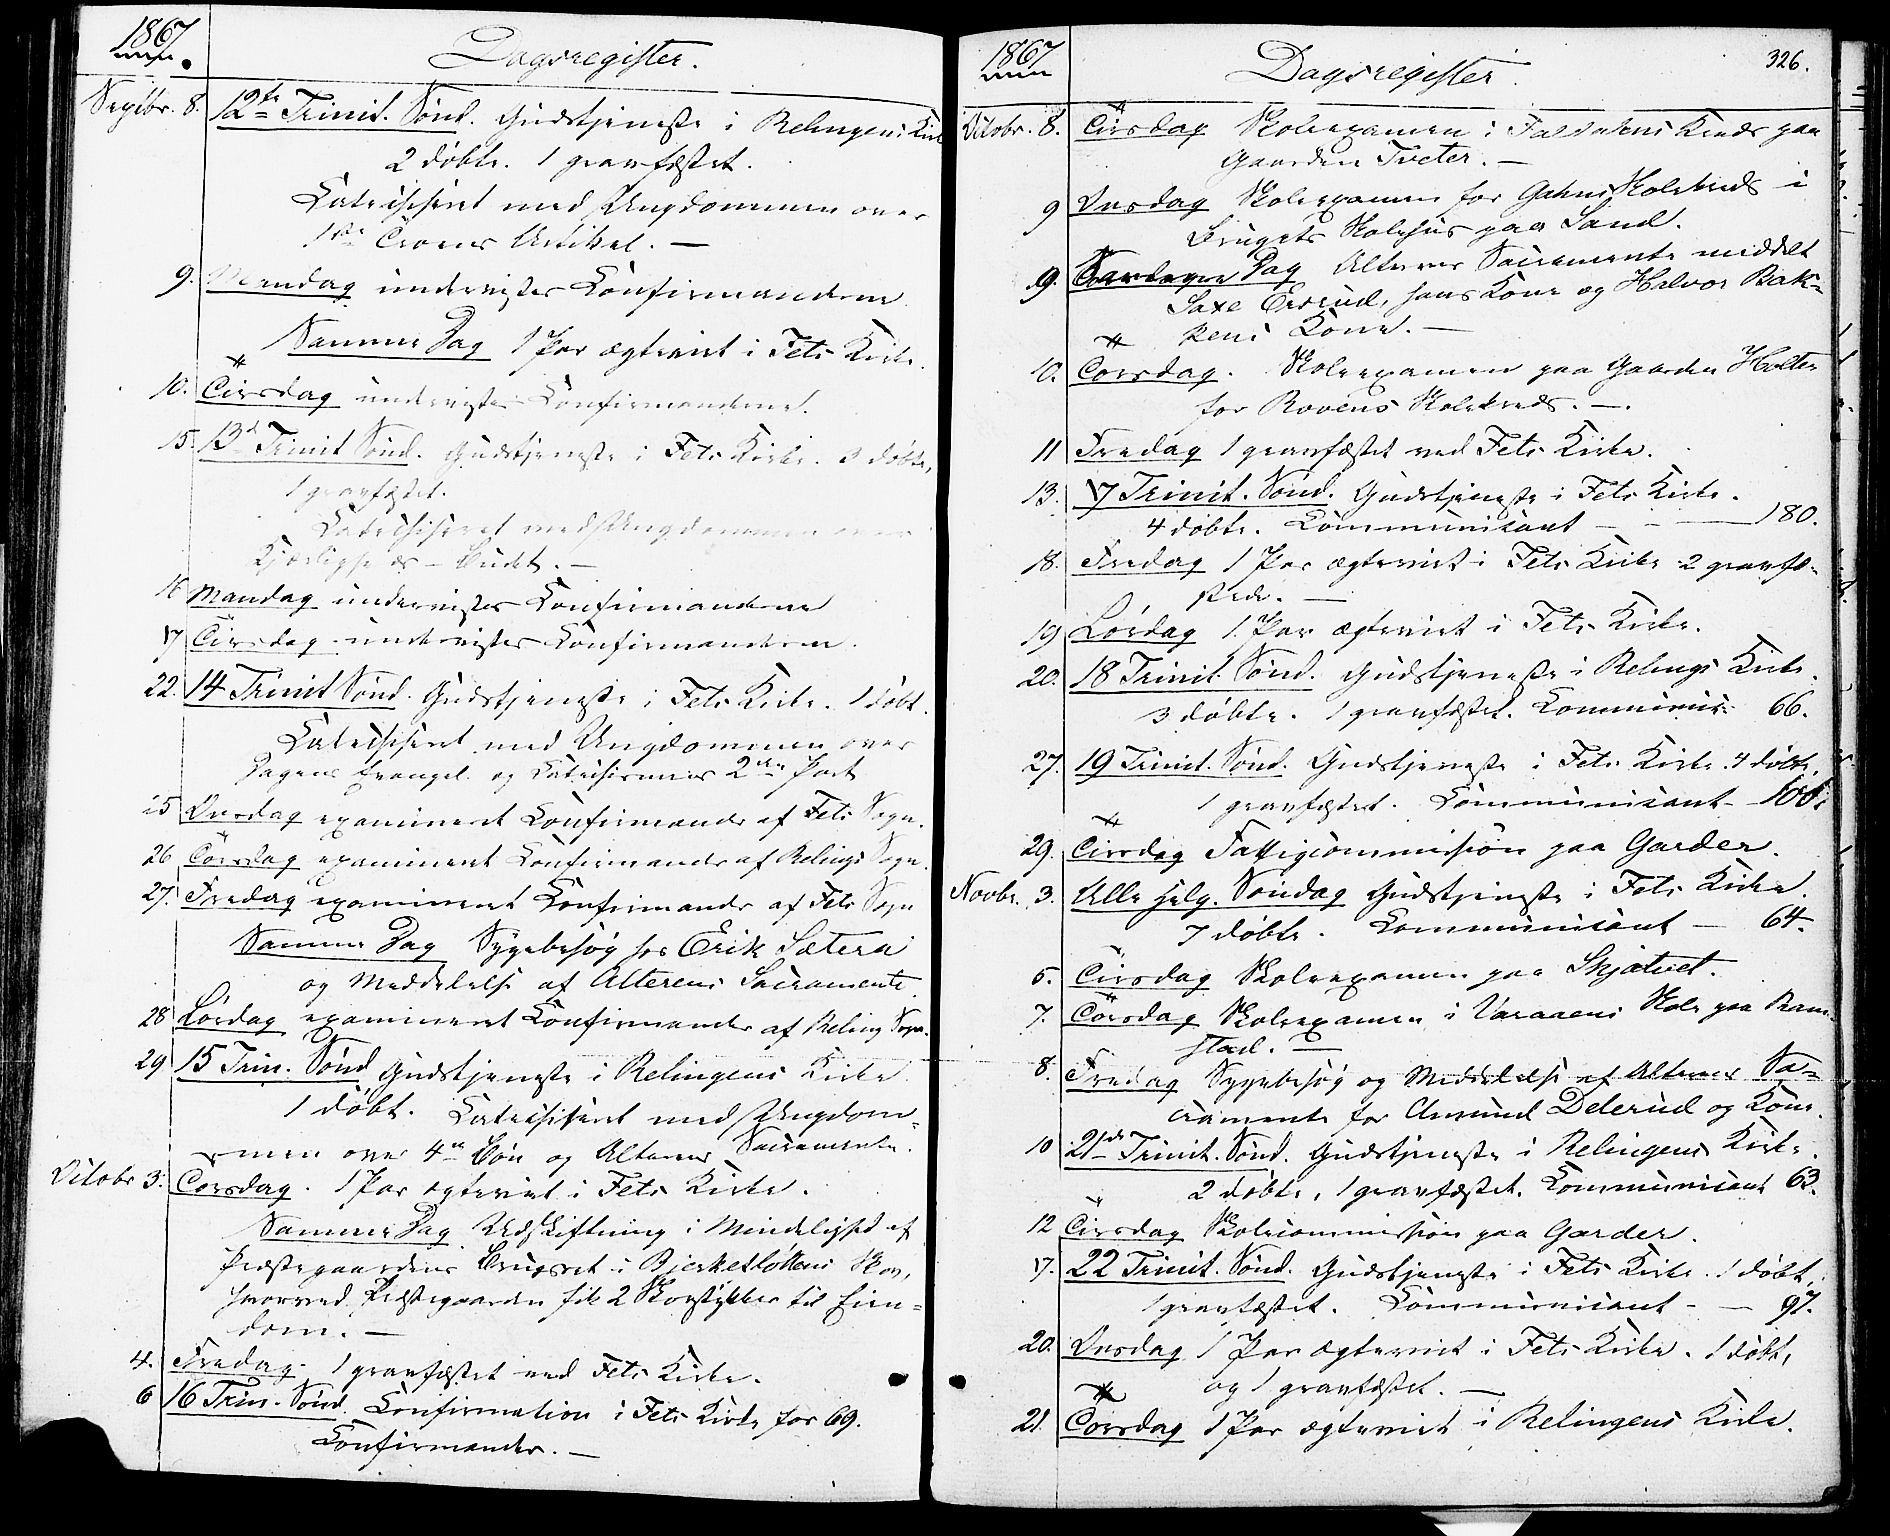 1867
Dagsregister.
Septbr. 8. 12te Trinit. Sønd. Gudstjeneste i Relingens Kirke
2 døbte. 1 gravfæstet.
Catechiseret med Ungdommen over
1ste Troens Artikel. —
9. Mandag underviste Confirmanderne
Samme Dag 1 Par ægteviet i Fets Kirke.
10. Tirsdag underviste Confirmanderne.
15. 13d Trinit Sønd. Gudstjeneste i Fets Kirke. 3 døbte,
1 gravfæstet.
Catechiseret med Ungdommen over
Kjærligheds-Budet. —
16 Mandag underviste Confirmanderne
17 Tirsdag underviste Confirmanderne.
22. 14 Trinit Sønd. Gudstjeneste i Fets Kirke. 1 døbt.
Catechiseret med Ungdommen over
Dagens Evangel. og Catechismens 2den Part
25 Onsdag examineret Confirmander af Fets Sogn.
26 Torsdag examineret Confirmander af Relings Sogn.
27. Fredag examineret Confirmander af Fets Sogn
Samme Dag Sygebesøg hos Erik Sætera
og Meddelelse af Alterens Sacramente
28 Lørdag examineret Confirmander af Reling Sogn.
29 15 Trin. Sønd Gudstjeneste i Relingens Kirke
1 døbt. Catechiseret med Ungdom-
men over 4de Bøn og Alterens Sacramente.
Octobr 3. Torsdag. 1 Par ægteviet i Fets Kirke.
Samme Dag Udskiftning i Mindelighed af
Præstegaardens Brugsret i Bjerkesløttens Skov,
hvorved Præstegaarden fik 2 Skovstykker til Eien-
dom. —
4. Fredag 1 gravfæstet ved Fets Kirke.
6 16 Trin. Sønd. Confirmation i Fets Kirke for 69.
Confirmander. —
1867
Dagsregister.
326.
Octobr. 8. Tirsdag Skoleexamen i Faldalens Kreds paa
Gaarden Tveter. —
9 Onsdag Skoleexamen for Gahns Skolekreds i
Brugets Skolehus paa Sand.
9. Samme Dag Alterens Sacramente meddelt
Saxe Ersrud, hans Kone og Halvor Bak-
kens Kone. —
10. Torsdag. Skoleexamen paa Gaarden Holter
for Rovens Skolekreds. —.
11 Fredag 1 gravfæstet ved Fets Kirke.
13. 17 Trinit. Sønd. Gudstjeneste i Fets Kirke.
4 døbte. Communicant — 180.
18. Fredag 1 Par ægteviet i Fets Kirke 2 gravfæ-
stede. —
19 Lørdag 1 Par ægteviet i Fets Kirke.
20. 18 Trinit. Sønd. Gudstjeneste i Relings Kirke.
3 døbte. 1 gravfæstet. Communic. 66.
27. 19 Trinit. Sønd. Gudstjeneste i Fets Kirke. 4 døbte,
1 gravfæstet. Communicant
29. Tirsdag Fattigcommission paa Garder.
Novbr. 3. Alle Helg. Søndag Gudstjeneste i Fets Kirke.
7 døbte. Communicant — 64.
5. Tirsdag Skoleexamen paa Skjatvet.
7. Torsdag Skoleexamen i Varaaens Skole paa Ram-
stad. —
8. Fredag Sygebesøg og Meddelelse af Alterens Sa-
cramente for Amund Delerud og Kone.
10 21de Trinit. Sønd. Gudstjeneste i Relingens Kirke.
2 døbte, 1 gravfæstet. Communicant 63.
12 Tirsdag Skolecommission paa Garder.
17. 22 Trinit. Sønd. Gudstjeneste i Fets Kirke. 1 døbt,
1 gravfæstet. Communicant — 97.
20. Onsdag 1 Par ægteviet i Fets Kirke. 1 døbt,
og 1 gravfæstet. —
21. Torsdag 1 Par ægteviet i Relingens Kirke.